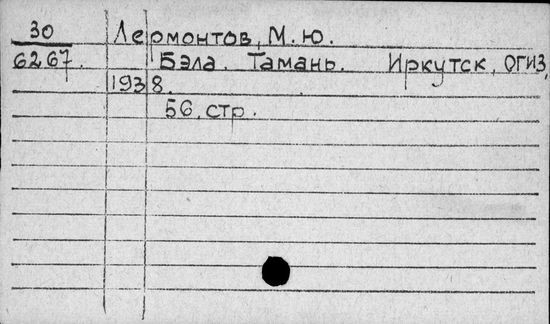 30 Лермонтов, М. Ю.
6267. Бэла. Тамань. Иркутск, ОГИЗ,
1938.
56, стр.